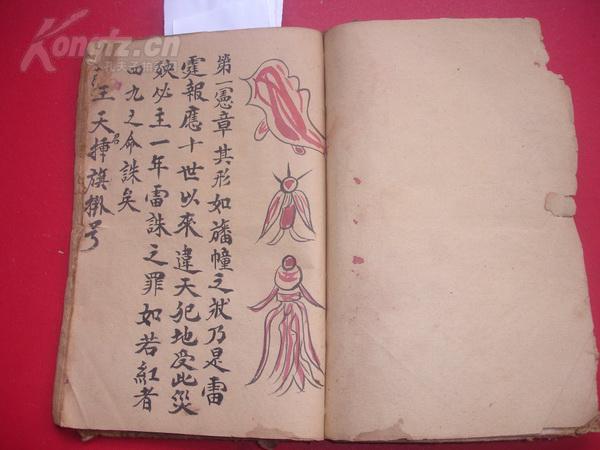 第一憲章其形如旛幢之狀乃是雷
霆報應十世以來違天犯地受此災
殃必主一年雷誅之罪如若紅者
四九之命誅矣
王天揮旗撇号
名
Kongfz.cn
孔夫子拍